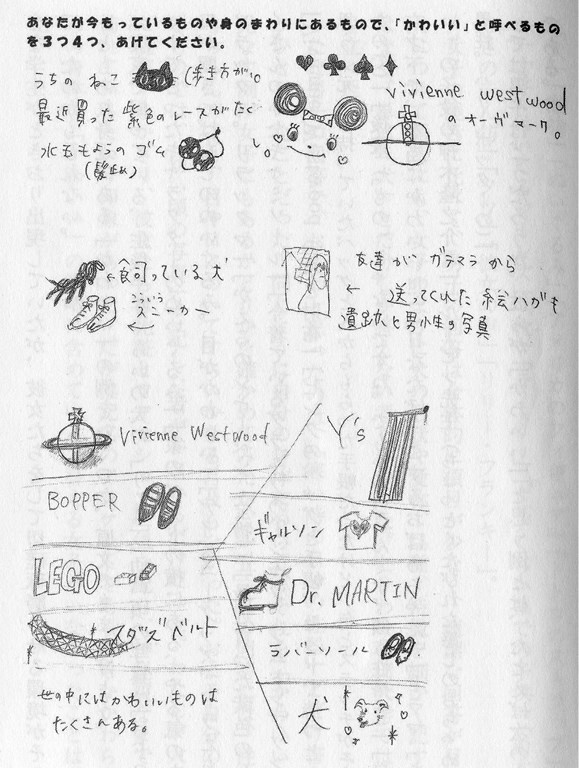 あなたが今もっているものや身のまわりにあるもので、「かわいい」と呼べるもの
を3つ4つ、あげてください。
うちの ねこ (歩き方が)
最近買った紫色のレースがたく
水玉もようの ゴム
(髪止め)
vivienne westwood
のオーヴマーク。
←飼っている犬
こういう
スニーカー
友達が ガテマラから
← 送ってくれた 絵ハガキ
遺跡と男性の写真
Vivienne Westwood
BOPPER
LEGO
スタッズベルト
世の中にはかわいいものは
たくさんある。
Y's
ギャルソン
Dr. MARTIN
ラバーソール
犬